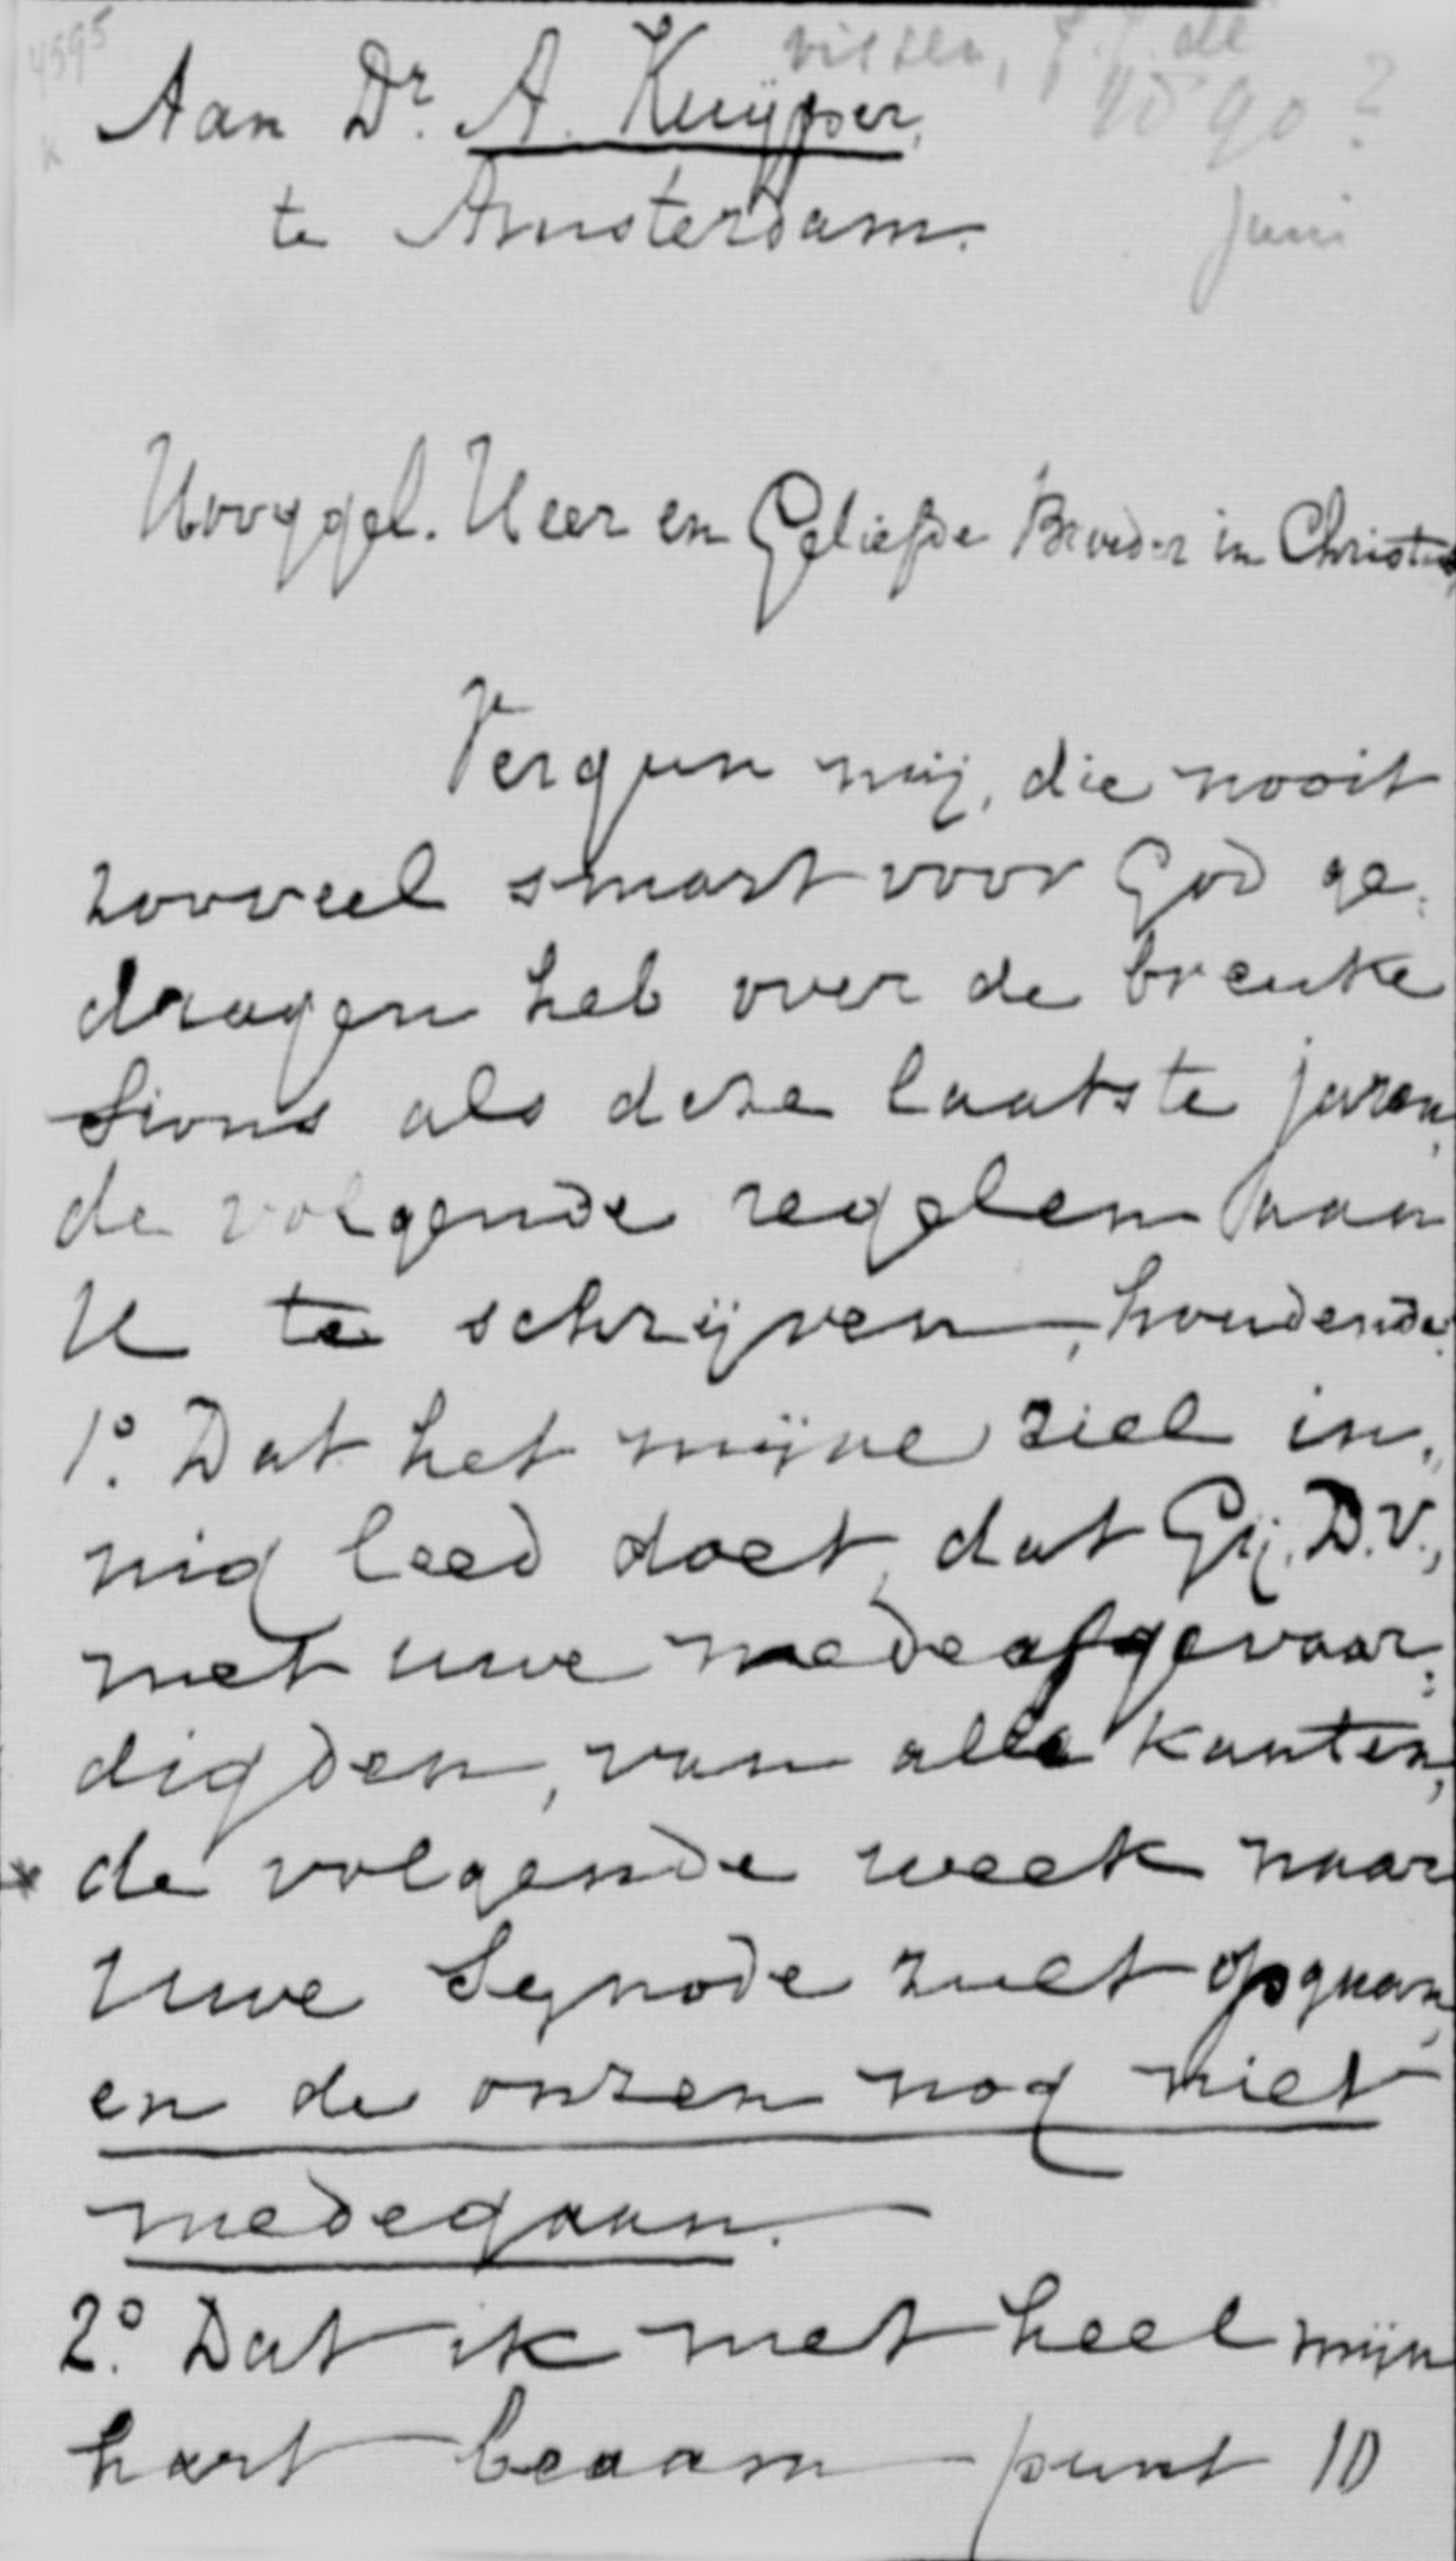 4595
Aan Dr. A. Kuyper,
te Amsterdam.
Juni
Hooggel. Heer en Geliefde Broeder in Christus,
Vergun mij, die nooit
zooveel smart voor God ge-
dragen heb over de breuke
Sions als deze laatste jaren,
de volgende regelen aan
U te schrijven, houdende:
1o. Dat het mijne ziel in-
nig leed doet, dat Gij, D.V.,
met uwe medeafgevaar-
digden, van alle kanten,
de volgende week naar
Uwe Synode zult opgaan,
en de onzen nog niet
medegaan.
2o. Dat ik met heel mijn
hart beaam punt 10